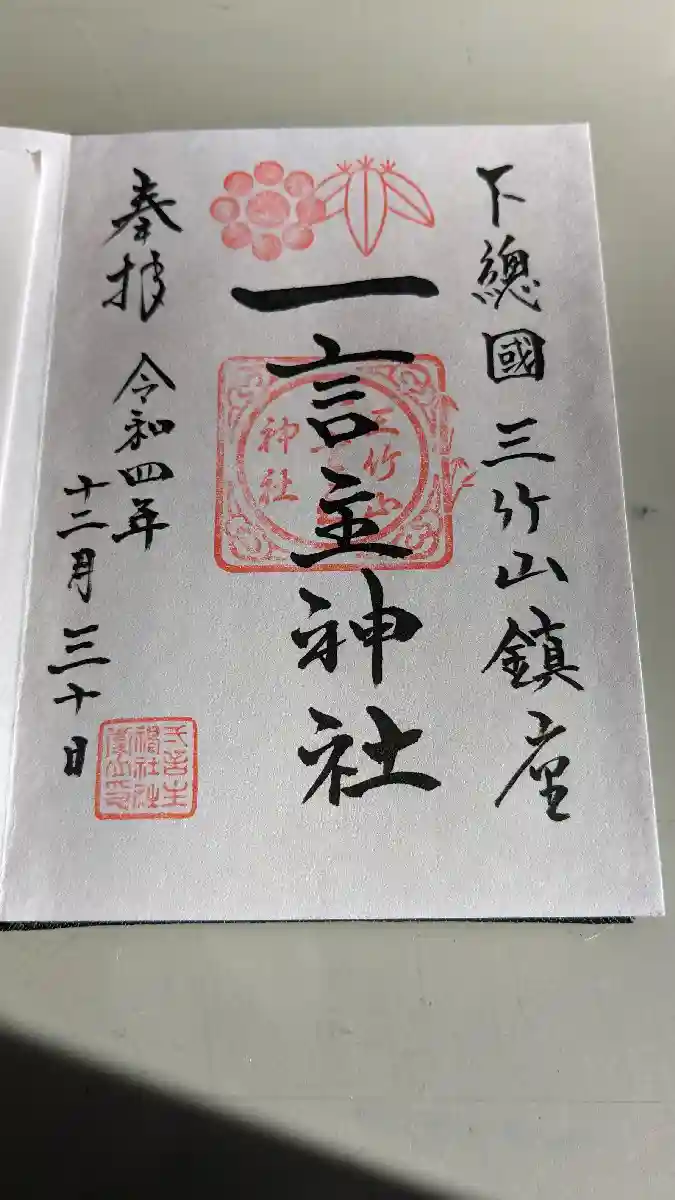 下總國三竹山鎮座
一言主神社
三竹山
神社
奉拝
令和四年
十二月三十日